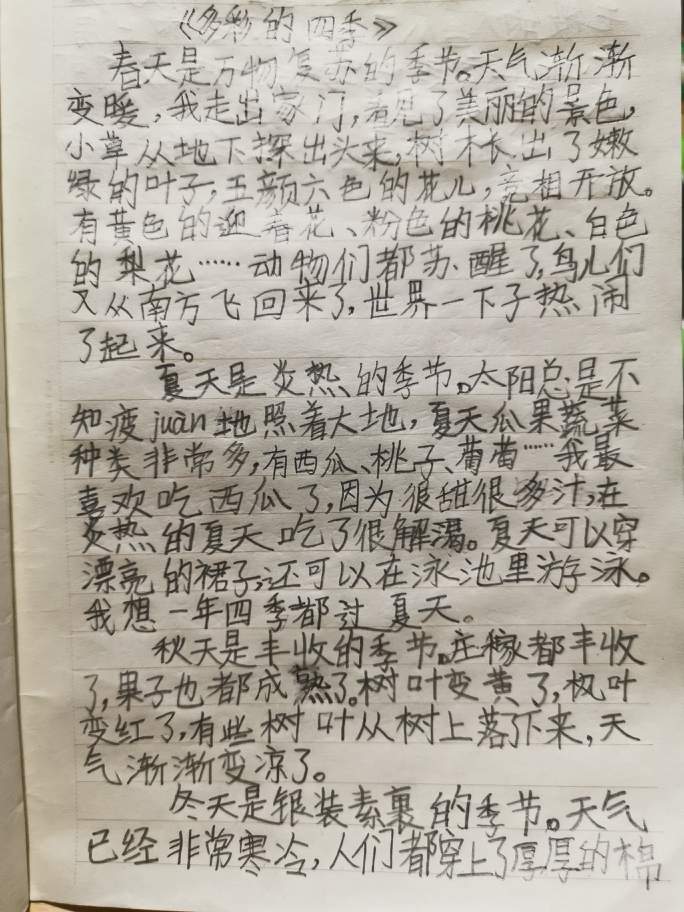 《多彩的四季》
春天是万物复苏的季节。天气渐渐
变暖，我走出家门，看见了美丽的景色，
小草从地下探出头来，树木长出了嫩
绿的叶子，五颜六色的花儿，竞相开放。
有黄色的迎着花、粉色的桃花、白色
的梨花……动物们都苏醒了，鸟儿们
又从南方飞回来了，世界一下子热闹
了起来。
夏天是炎热的季节。太阳总是不
知疲juàn地照着大地，夏天瓜果蔬菜
种类非常多，有西瓜、桃子、葡萄……我最
喜欢吃西瓜了，因为很甜很多汁，在
炎热的夏天吃了很解渴。夏天可以穿
漂亮的裙子，还可以在泳池里游泳。
我想一年四季都过夏天。
秋天是丰收的季节。庄稼都丰收
了，果子也都成熟了。树叶变黄了，枫叶
变红了，有些树叶从树上落了下来，天
气渐渐变凉了。
冬天是银装素裹的季节。天气
已经非常寒冷，人们都穿上了厚厚的棉